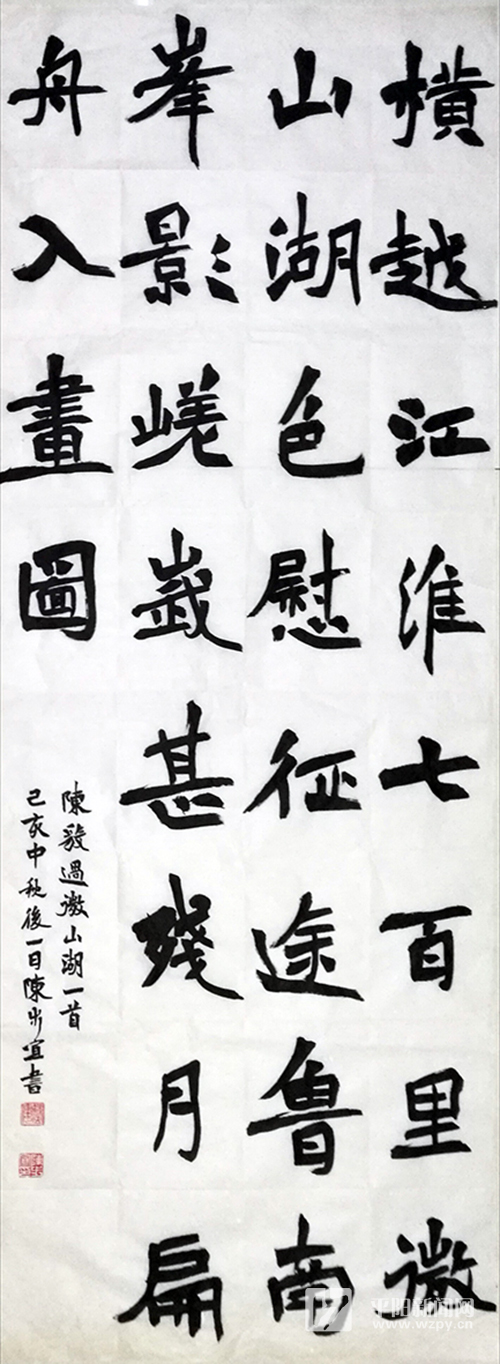 橫越江淮七百里微
山湖色慰征途魯南
峯影嵯峩甚殘月扁
舟入畫圖
陳毅過微山湖一首
己亥中秋後一日陳步宜書
平阳新闻网
www.wzpy.cn